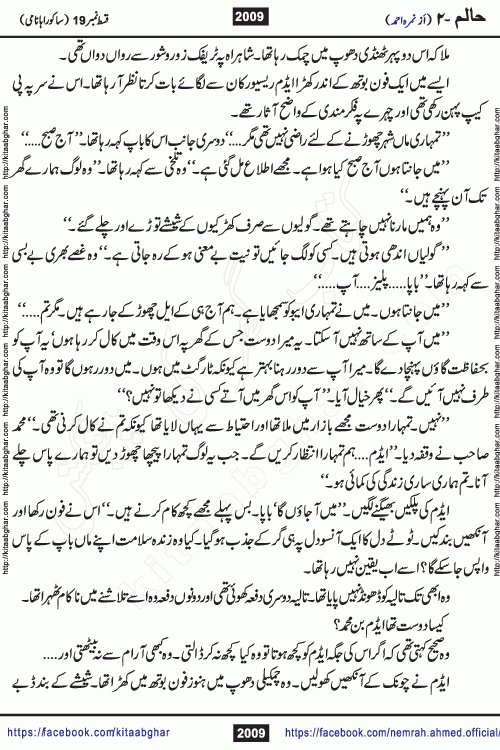 حالم -۲ (از نمرہ احمد) 2009 قسط نمبر 19 (ساکورا ہانامی)
ملاکہ اس دوپہر ٹھنڈی دھوپ میں چمک رہا تھا۔ شاہراہ پہ ٹریفک زور و شور سے رواں دواں تھی۔
ایسے میں ایک فون بوتھ کے اندر کھڑا ایڈم ریسیور کان سے لگائے بات کرتا نظر آ رہا تھا۔ اس نے سر پہ پی
کیپ پہن رکھی تھی اور چہرے پہ فکر مندی کے واضح آثار تھے۔
’’تمہاری ماں شہر چھوڑنے کے لئے راضی نہیں تھی مگر....‘‘ دوسری جانب اس کا باپ کہہ رہا تھا۔ ’’آج صبح.....‘‘
’’میں جانتا ہوں آج صبح کیا ہوا ہے۔ مجھے اطلاع مل گئی ہے۔‘‘ وہ تلخی سے کہہ رہا تھا۔ ’’وہ لوگ ہمارے گھر
تک آن پہنچے ہیں۔‘‘
’’وہ ہمیں مارنا نہیں چاہتے تھے۔ گولیوں سے صرف کھڑکیوں کے شیشے توڑے اور چلے گئے۔‘‘
’’گولیاں اندھی ہوتی ہیں۔ کسی کو لگ جائیں تو نیت بے معنی ہو کے رہ جاتی ہے۔‘‘ وہ غصے بھری بے بسی
سے کہہ رہا تھا۔ ’’باپا..... پلیز.... آپ.....‘‘
’’میں جانتا ہوں۔ میں نے تمہاری ایبو کو سمجھایا ہے۔ ہم آج ہی کے ایل چھوڑ کے جا رہے ہیں۔ مگر تم.....‘‘
’’میں آپ کے ساتھ نہیں آ سکتا۔ یہ میرا دوست جس کے گھر پہ اس وقت میں کال کر رہا ہوں‘ یہ آپ کو
بحفاظت گاؤں پہنچا دے گا۔ میرا آپ سے دور رہنا بہتر ہے کیونکہ ٹارگٹ میں ہوں۔ میں دور رہوں گا تو وہ آپ کی
طرف نہیں آئیں گے۔‘‘ پھر خیال آیا۔ ’’آپ کو اس گھر میں آتے کسی نے دیکھا تو نہیں؟‘‘
’’نہیں۔ تمہارا دوست مجھے بازار میں ملا تھا اور احتیاط سے یہاں لایا تھا کیونکہ تم نے کال کرنی تھی۔‘‘ محمد
صاحب نے وقفہ دیا۔ ’’ایڈم.... ہم تمہارا انتظار کریں گے۔ جب یہ لوگ تمہارا پیچھا چھوڑ دیں تو ہمارے پاس چلے
آنا۔ تم ہماری ساری زندگی کی کمائی ہو۔‘‘
ایڈم کی پلکیں بھیگنے لگیں۔ ’’میں آ جاؤں گا‘ باپا۔ بس پہلے مجھے کچھ کام کرنے ہیں۔‘‘ اس نے فون رکھا اور
آنکھیں بند کیں۔ ٹوٹے دل کا ایک آنسو دل پہ ہی گر کے جذب ہو گیا۔ کیا وہ زندہ سلامت اپنے ماں باپ کے پاس
واپس جا سکے گا؟ اسے اب یقین نہیں رہا تھا۔
وہ ابھی تک تالیہ کو ڈھونڈ نہیں پایا تھا۔ تالیہ دوسری دفعہ کھوئی تھی اور دونوں دفعہ وہ اسے تلاشنے میں ناکام ٹھہرا تھا۔
کیسا دوست تھا ایڈم بن محمد؟
وہ صحیح کہتی تھی کہ اگر اس کی جگہ ایڈم کو کچھ ہوتا تو وہ کیا کچھ نہ کر ڈالتی۔ وہ کبھی آرام سے نہ بیٹھتی اور.....
ایڈم نے چونک کے آنکھیں کھولیں۔ وہ چمکیلی دھوپ میں ہنوز فون بوتھ میں کھڑا تھا۔ شیشے کے بند ڈبے
https://facebook.com/kitaabghar 2009 https://facebook.com/nemrah.ahmed.official/
http://kitaabghar.com http://kitaabghar.com http://kitaabghar.com http://kitaabghar.com
http://kitaabghar.com http://kitaabghar.com http://kitaabghar.com http://kitaabghar.com